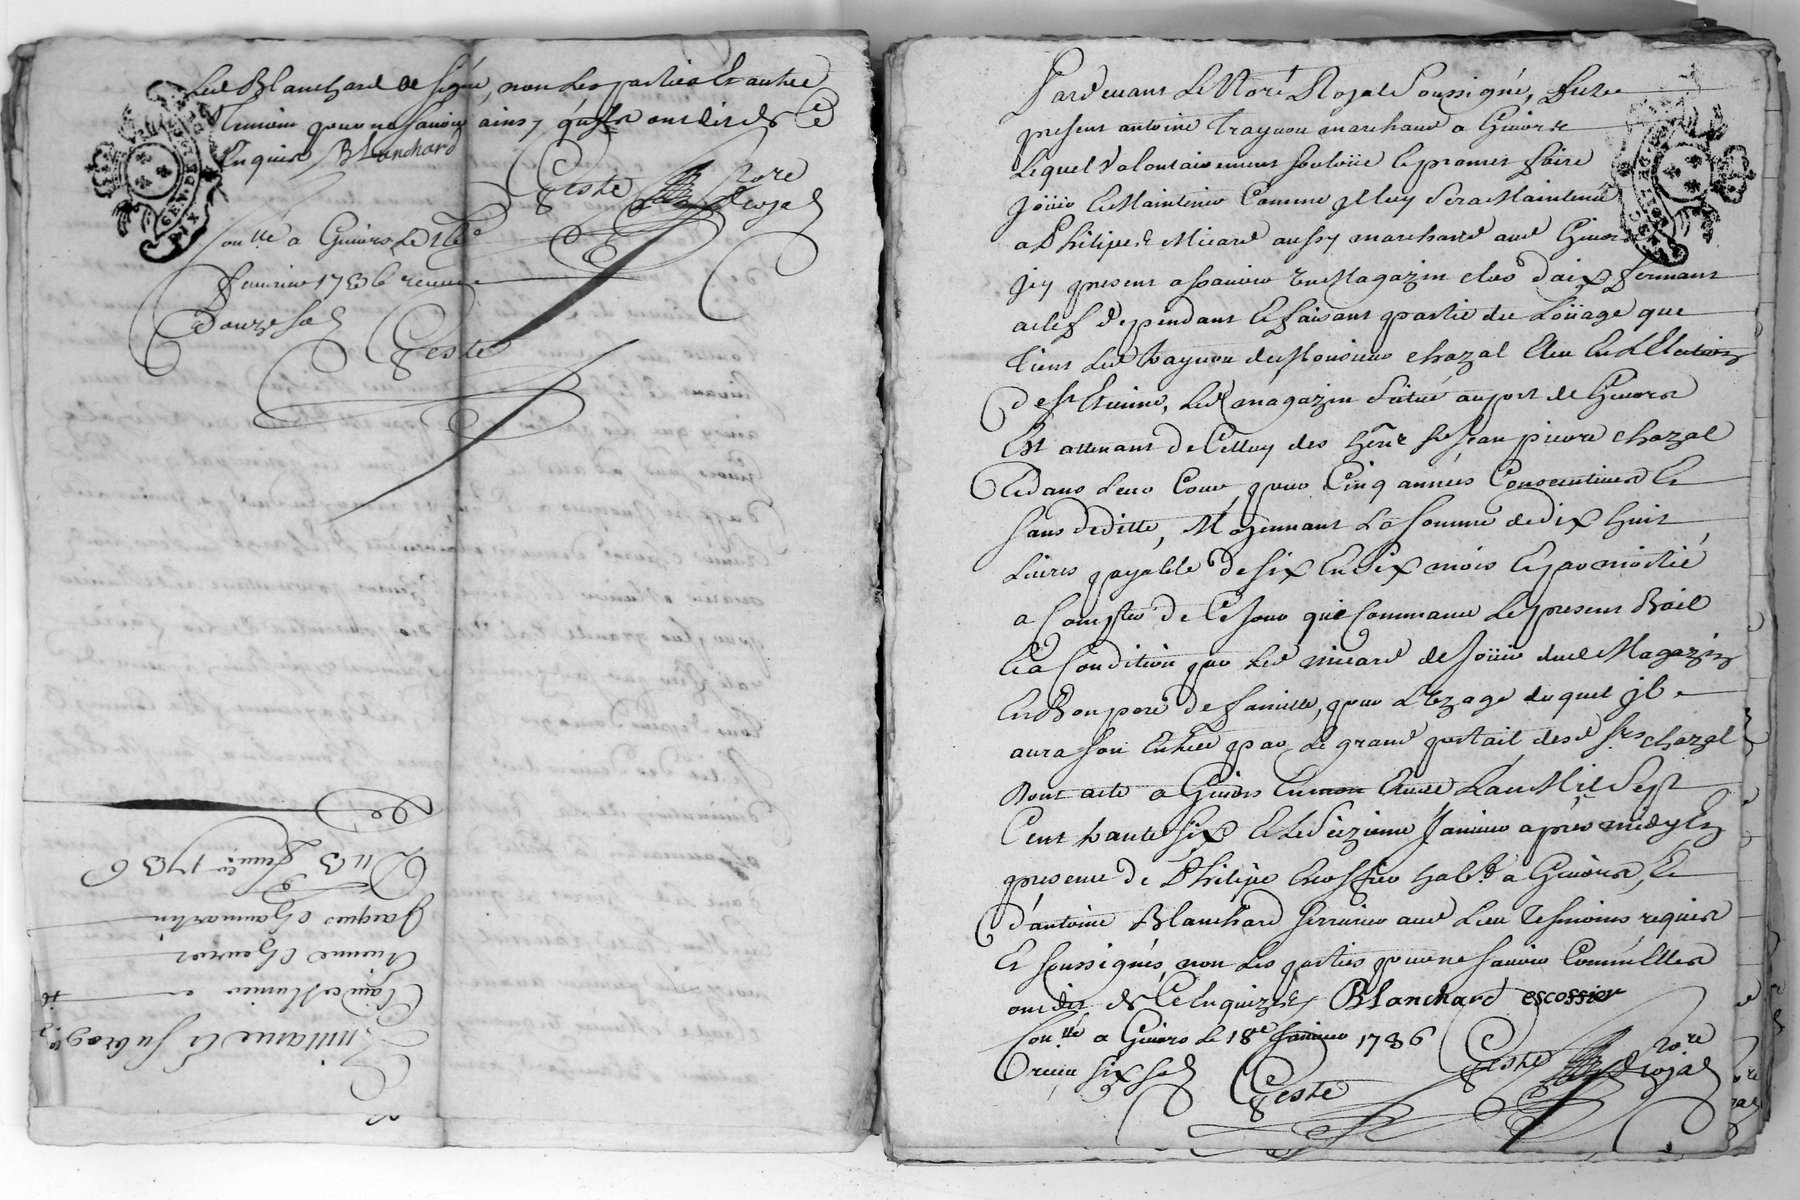 Led Blanchard de signé, non les parties et autre
temoin pour ne savoir ainsy qu'ils ont dit de ce
Enquis Blanchard
Geste Nore Royal
Con.lle a Givors le
Janvier 1736 receu
Douze sols
Geste
GEN. DE
AIX
Du 3 Janv.er 1736
Jacques Chamartin
Etienne
Claude
Quittance et subrog.on
Pardevant Le Nore Royal Soussigné, fut
present antoine Trayvou marchand a Givors
Lequel volontairement sousloüe et promet faire
Joüir et Maintenir Comme jl luy sera Maintenu
a Philipe Micard aussy marchand aud Givors
jcy present asçavoir un Magazin clos d'aix fermant
a clef dependant et faisant partie du Loüage que
tient led trayvou de Monsieur chazal Eleu En L'Election
de St Etienne, Led magazin situé au port de Givors
Est attenant de Celluy des hers sr jean pierre chazal
Et dans leur Cour, pour Cinq années Consecutives Et
sans deditte, Moyennant La somme de dix huit
Livres payable de six En six mois Et par moitié
a Compter de Ce jour que Commance Le present Bail
Et a Condition par led micard de joüir dud Magazin
En Bon pere de famille, pour L'Uzage duquel jl
aura son Entrée par Le grand portail desd srs chazal
Dont acte a Givors En mon Etude L'an Mil Sept
Cent trante six Et le seizieme Janvier apres midy En
presence de Philipe Escossier habt a Givors, Et
d'antoine Blanchard serrurier aud Lieu tesmoins requis
Et soussignés, non Les parties pour ne savoir Comm'Elles
ont dit de Ce Enquizes Blanchard escossier
Con.lle a Givors le 18e Janvier 1736
Receu six sols Geste Geste Nore Royal